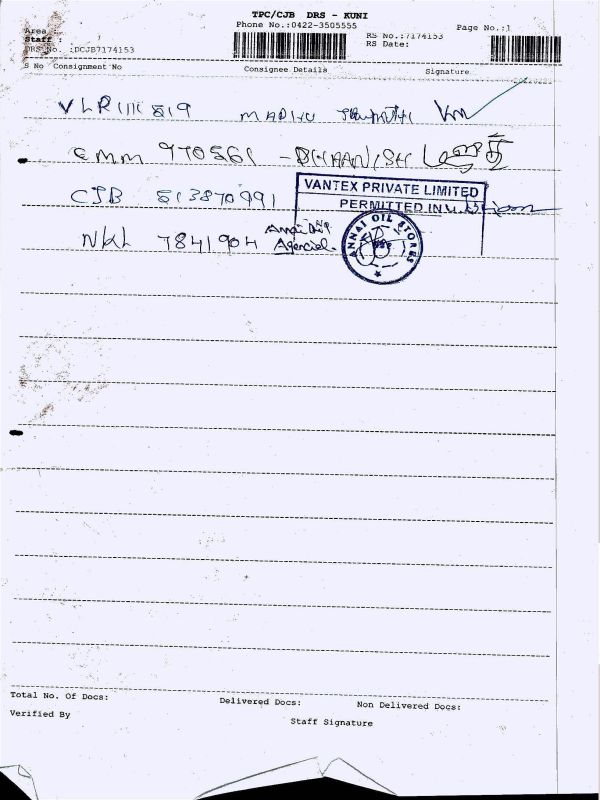 TPC/CJB DRS - KUNI
Phone No.:0422-3505555
Page No.:1
Area
Staff :
RS No.:7174153
RS Date:
DRS No. :DCJB7174153
S No Consignment No Consignee Details Signature
VLR 111 819
CMM 970561 - DHAANISH
CJB 513870991
VANTEX PRIVATE LIMITED
PERMITTED IN
NKL 7841904
ANNAI OIL STORES
Total No. Of Docs: Delivered Docs: Non Delivered Docs:
Verified By
Staff Signature